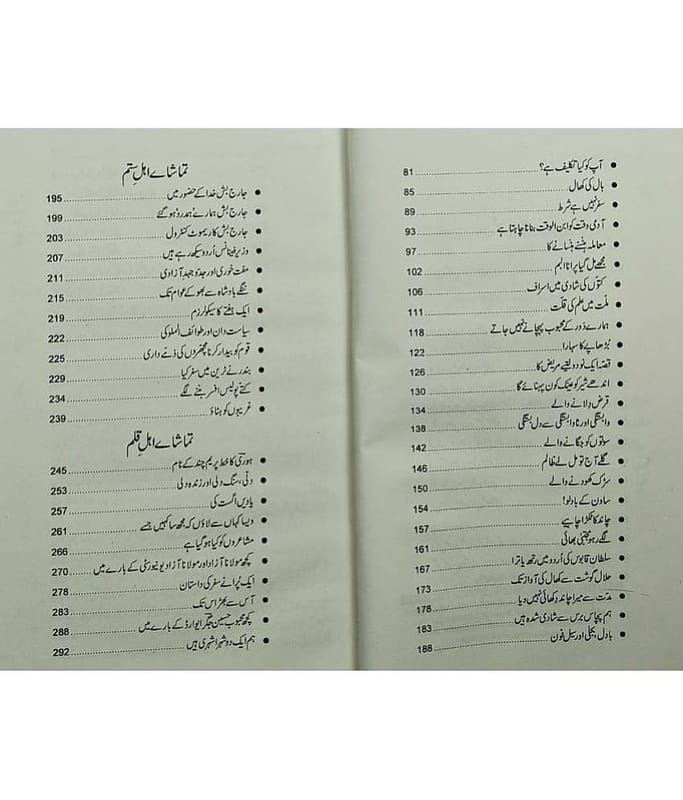 آپ کو کیا تکلیف ہے؟ 81
بال کی کھال 85
سفر نہیں ہے شرط 89
آدمی وقت کو ابن الوقت بنانا چاہتا ہے 93
معاملہ ہنسنے ہنسانے کا 97
مجھے مل گیا پرانا البم 102
کتوں کی شادی میں اسراف 106
ملت میں علم کی قلت 111
ہمارے دَور کے محبوب پہچانے نہیں جاتے 118
بُڑھاپے کا سہارا 122
قصہ ایک نو دولتیے مریض کا 126
اندھے شیر کو عینک کون پہنائے گا 130
قرض دِلانے والے 134
وابستگی اور ناوابستگی سے دل بستگی 138
سوتوں کو جگانے والے 142
گلے آج تو مل لے ظالم 146
سڑک کھودنے والے 150
ساون کے بادلو! 154
چاند کا ٹکڑا چاہیے 157
لگے رہو مجتبیٰ بھائی 161
سلطان قابوس کی اُردو میں رتھ یاترا 167
حلال گوشت سے کھال کی آواز تک 173
مدّت سے میرا چاند دکھائی نہیں دیا 178
ہم پچاس برس سے شادی شدہ ہیں 183
بادل بجلی اور سیل فون 188
تماشائے اہلِ ستم
جارج بش خدا کے حضور میں 195
جارج بش ہمارے ہمدرد ہوگئے 199
جارج بش کا ریموٹ کنٹرول 203
وزیر فینانس اُردو سیکھ رہے ہیں 207
مفت خوری اور جدوجہد آزادی 211
ننگے بادشاہ سے بھوکے عوام تک 215
ایک ہفتے کا سیکولرزم 219
سیاست دان اور طوائف الملوکی 222
قوم کو بیدار کرنا مچھروں کی ذمے داری 225
بندر نے ٹرین میں سفر کیا 229
کتے پولیس افسر بننے لگے 234
غریبوں کو ہناؤ 239
تماشائے اہلِ قلم
ہوری کا خط پریم چند کے نام 245
دلّی، سنگ دلی اور زندہ دلی 253
یادیں اگست کی 257
ویسا کہاں سے لاؤں کہ مجھ سا کہیں جسے 261
مشاعروں کو کیا ہوگیا ہے 266
کچھ مولانا آزاد اور مولانا آزاد یونیورسٹی کے بارے میں 270
ایک پُرانے سفر کی داستان 278
آس سے بھڑاس تک 283
کچھ محبوب حسین جگر ایوارڈ کے بارے میں 288
ہم ایک دو شہرا شہری ہیں 292